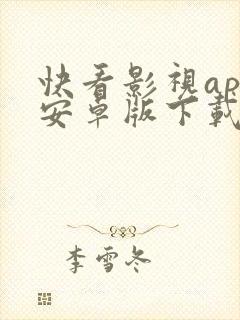 快看影視ap
安卓版下載
李雪冬